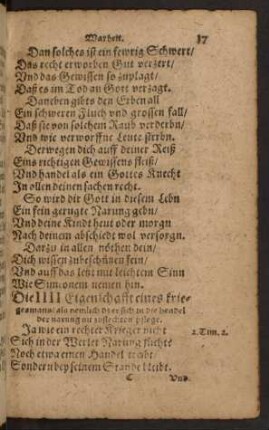 Warheit. 17
Dan solches ist ein fewrig Schwert/
Das recht erworben Gut verzert/
Vnd das Gewissen so zuplagt/
Daß es im Tod an Gott verzagt.
Daneben gibts den Erben all
Ein schweren Fluch vnd grossen fall/
Daß sie von solchem Raub verderbn/
Vnd wie verworffne Leute sterbn.
Derwegen dich auff deiner Reiß
Eins rechtigen Gewissens fleiß/
Vnd handel als ein Gottes Knecht
In allen deinen sachen recht.
So wird dir Gott in diesem Lebn
Ein fein gerugte Narung gebn/
Vnd deine Kindt heut oder morgn
Nach deinem abschiedt wol versorgn.
Darzu in allen nöthen dein/
Dich wissen zubeschützen fein/
Vnd auff das letzt mit leichtem Sinn
Wie Simeonem nemen hin.
Die IIII Eigenschafft eines krie-
gesmans: als nemlich das er sich in die handel
der narung nit
Ja wie ein rechter Krieger nicht
2. Tim. 2.
Sich in der Werlet Narung flichts
Noch etwa einen Handel treibt/
Sondern bey seinem Stande bleibt.
C Vnd